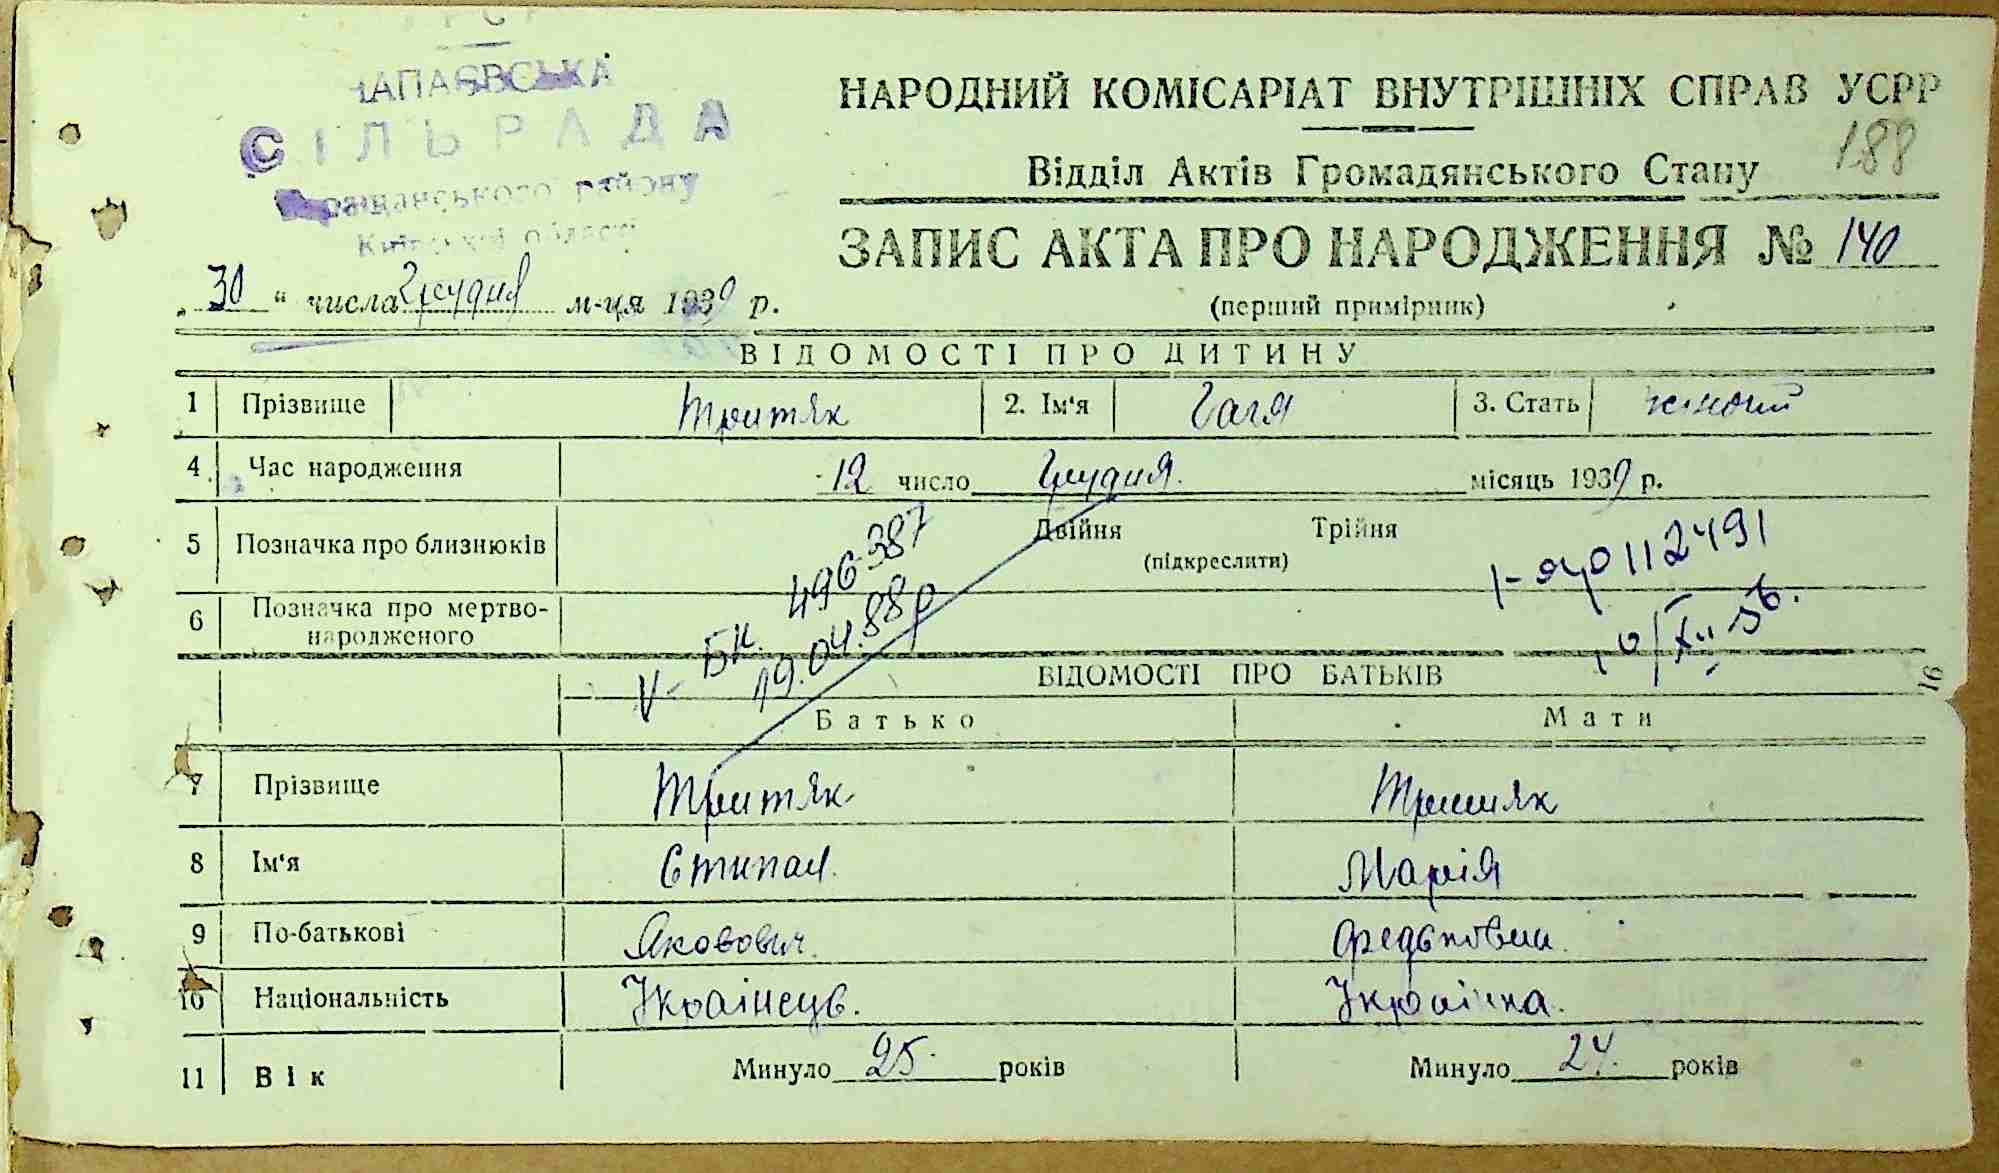 ЧАПАЄВСЬКА
СІЛЬРАДА
ращанського району
Київської області
НАРОДНИЙ КОМІСАРІАТ ВНУТРІШНІХ СПРАВ УСРР
188
Відділ Актів Громадянського Стану
ЗАПИС АКТА ПРО НАРОДЖЕННЯ № 140
(перший примірник)
„30“ числа Грудня м-ця 1939 р.
ВІДОМОСТІ ПРО ДИТИНУ
1 Прізвище Тритяк 2. Ім'я Галя 3. Стать жіночий
4 Час народження 12 число Грудня. місяць 1939 р.
5 Позначка про близнюків Двійня Трійня
(підкреслити)
6 Позначка про мертво-
народженого
V- БК 496387
19.04.88р
112491
ВІДОМОСТІ ПРО БАТЬКІВ
16
Батько Мати
7 Прізвище Тритяк Тритяк
8 Ім'я Степан Марія
9 По-батькові Якович
10 Національність Українець. Українка.
11 Вік Минуло 25 років Минуло 24 років